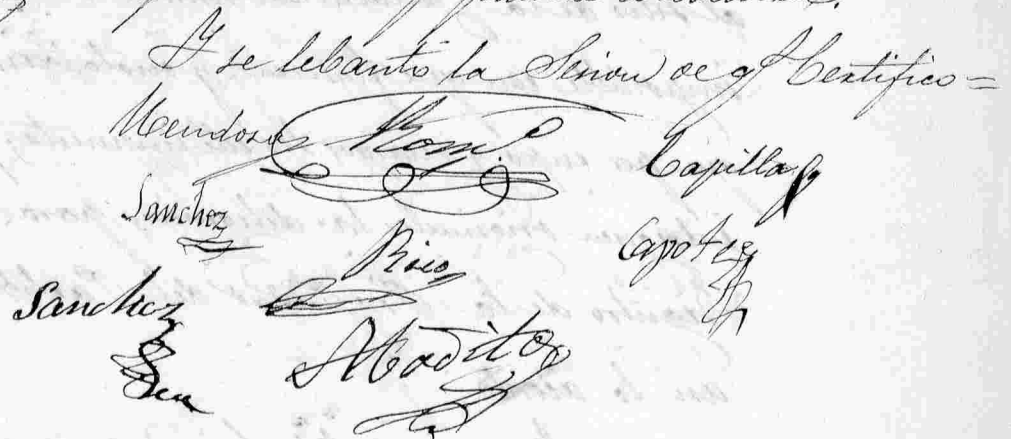 Y se lebanto la Sesion de q.e Certifico =
Mendosa Rom.o Capilla
Sanchez Rico Capote
Sanchez Abadito